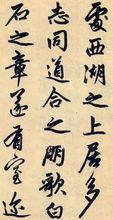 處西湖之上居多
志同道合之朋歌白
石之章遂有室近